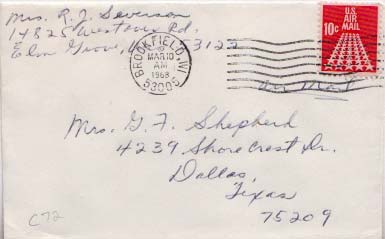 Mrs. R. J. Severson
14825 Westover Rd.
Elm Grove, 53122
BROOKFIELD, WI
MAR 10
AM
1968
53005
U.S.
AIR
MAIL
10c
air mail
Mrs. G. F. Shepherd
4239 Shorecrest Dr.
Dallas,
Texas
75209
C72